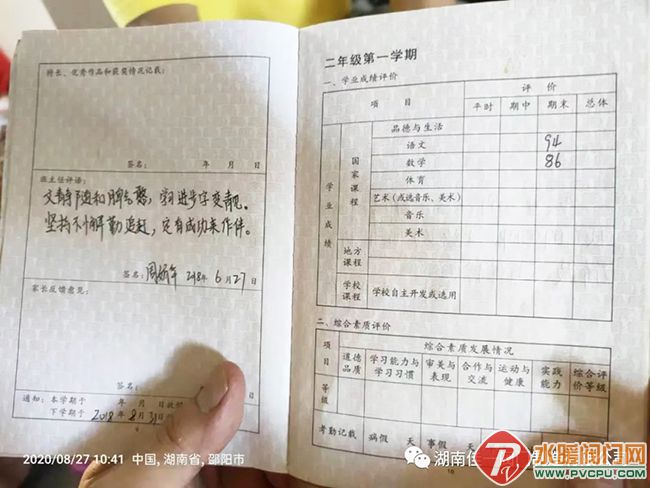 特长、优秀作品和获奖情况记载:
签名: 年 月 日
班主任评语:
文静随和脾气憨,学习进步字变靓。
坚持不懈勤追赶,定有成功来作伴。
签名: 2018年6月27日
家长反馈意见:
签名:
通知:本学期于 年 月 日
下学期于2018年8月31日
二年级第一学期
一、学业成绩评价
项 目
评 价
平时 期中 期末 总体
学业成绩
国家课程
品德与生活
语文 94
数学 86
体育
艺术(或选音乐、美术)
音乐
美术
地方课程
学校课程
学校自主开发或选用
二、综合素质评价
项目
综合素质发展情况
道德品质
学习能力与学习习惯
审美与表现
合作与交流
运动与健康
实践能力
综合评价等级
等级
考勤记载 病假 天 事假
2020/08/27 10:41 中国, 湖南省, 邵阳市
湖南佳
水暖阀门网
WWW.PVCPU.COM